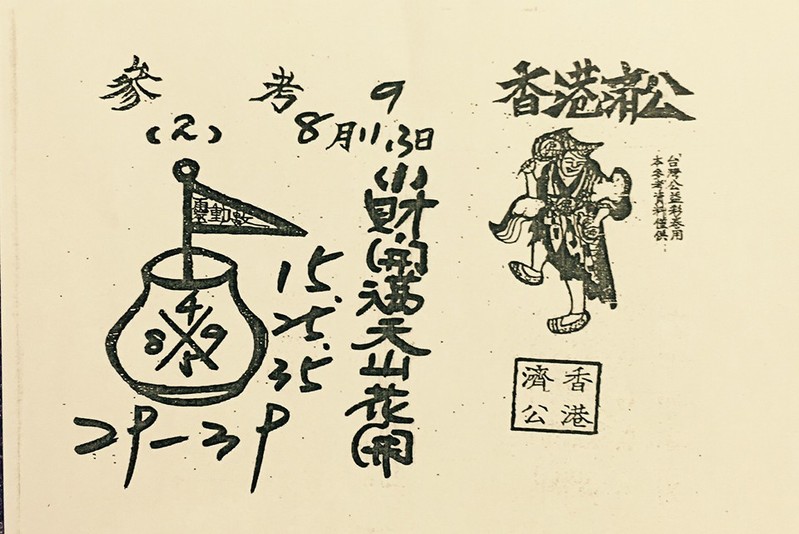 參 考
(2)
9
8月11.13日
財開滿天山花開
靈動數
4
8 9
15.
25.
35
29-39
香港濟公
本參考資料僅供
台灣公益彩卷用
香港
濟公